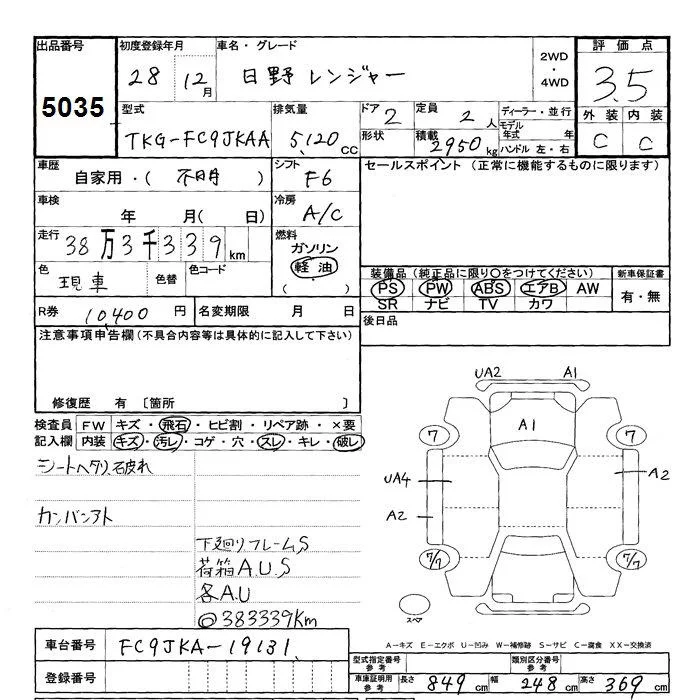 出品番号
5035
初度登録年月
28 12月
車名・グレード
日野レンジャー
2WD
・
4WD
評価点
3.5
型式
TKG-FC9JKAA
排気量
5,120cc
ドア 2
形状
定員 2人
積載 2950kg
ディーラー・並行
モデル年式 年
ハンドル 左・右
外装 内装
C C
車歴
自家用・( 不明 )
シフト
F6
セールスポイント (正常に機能するものに限ります)
車検
年 月( 日)
冷房
A/C
走行
38万3千339km
燃料
ガソリン
軽油
( ・ )
色
現車
色替
色コード
装備品 (純正品に限り〇をつけてください)
PS PW ABS エアB AW
SR ナビ TV カワ
新車保証書
有・無
R券 10,400円
名変期限 月 日
後日品
注意事項申告欄 (不具合内容等は具体的に記入して下さい)
修復歴 有 〔箇所 〕
検査員記入欄
FW キズ・飛石・ヒビ割・リペア跡・×要
内装 キズ・汚レ・コゲ・穴・スレ・キレ・破レ
シートヘタリ、破れ
カンバンアト
下廻りフレームS
荷箱A.U.S
各A.U
@383339Km
UA2 A1
A1
7 7
UA4 A2
A2
7/7 7/7
スペア
A-キズ E-エクボ U-凹み W-補修跡 S-サビ C-腐食 XX-交換済
車台番号 FC9JKA-19131
登録番号
型式指定番号 参考
類別区分番号 参考
車庫証明用 参考
長さ 849cm 幅 248cm 高さ 369cm